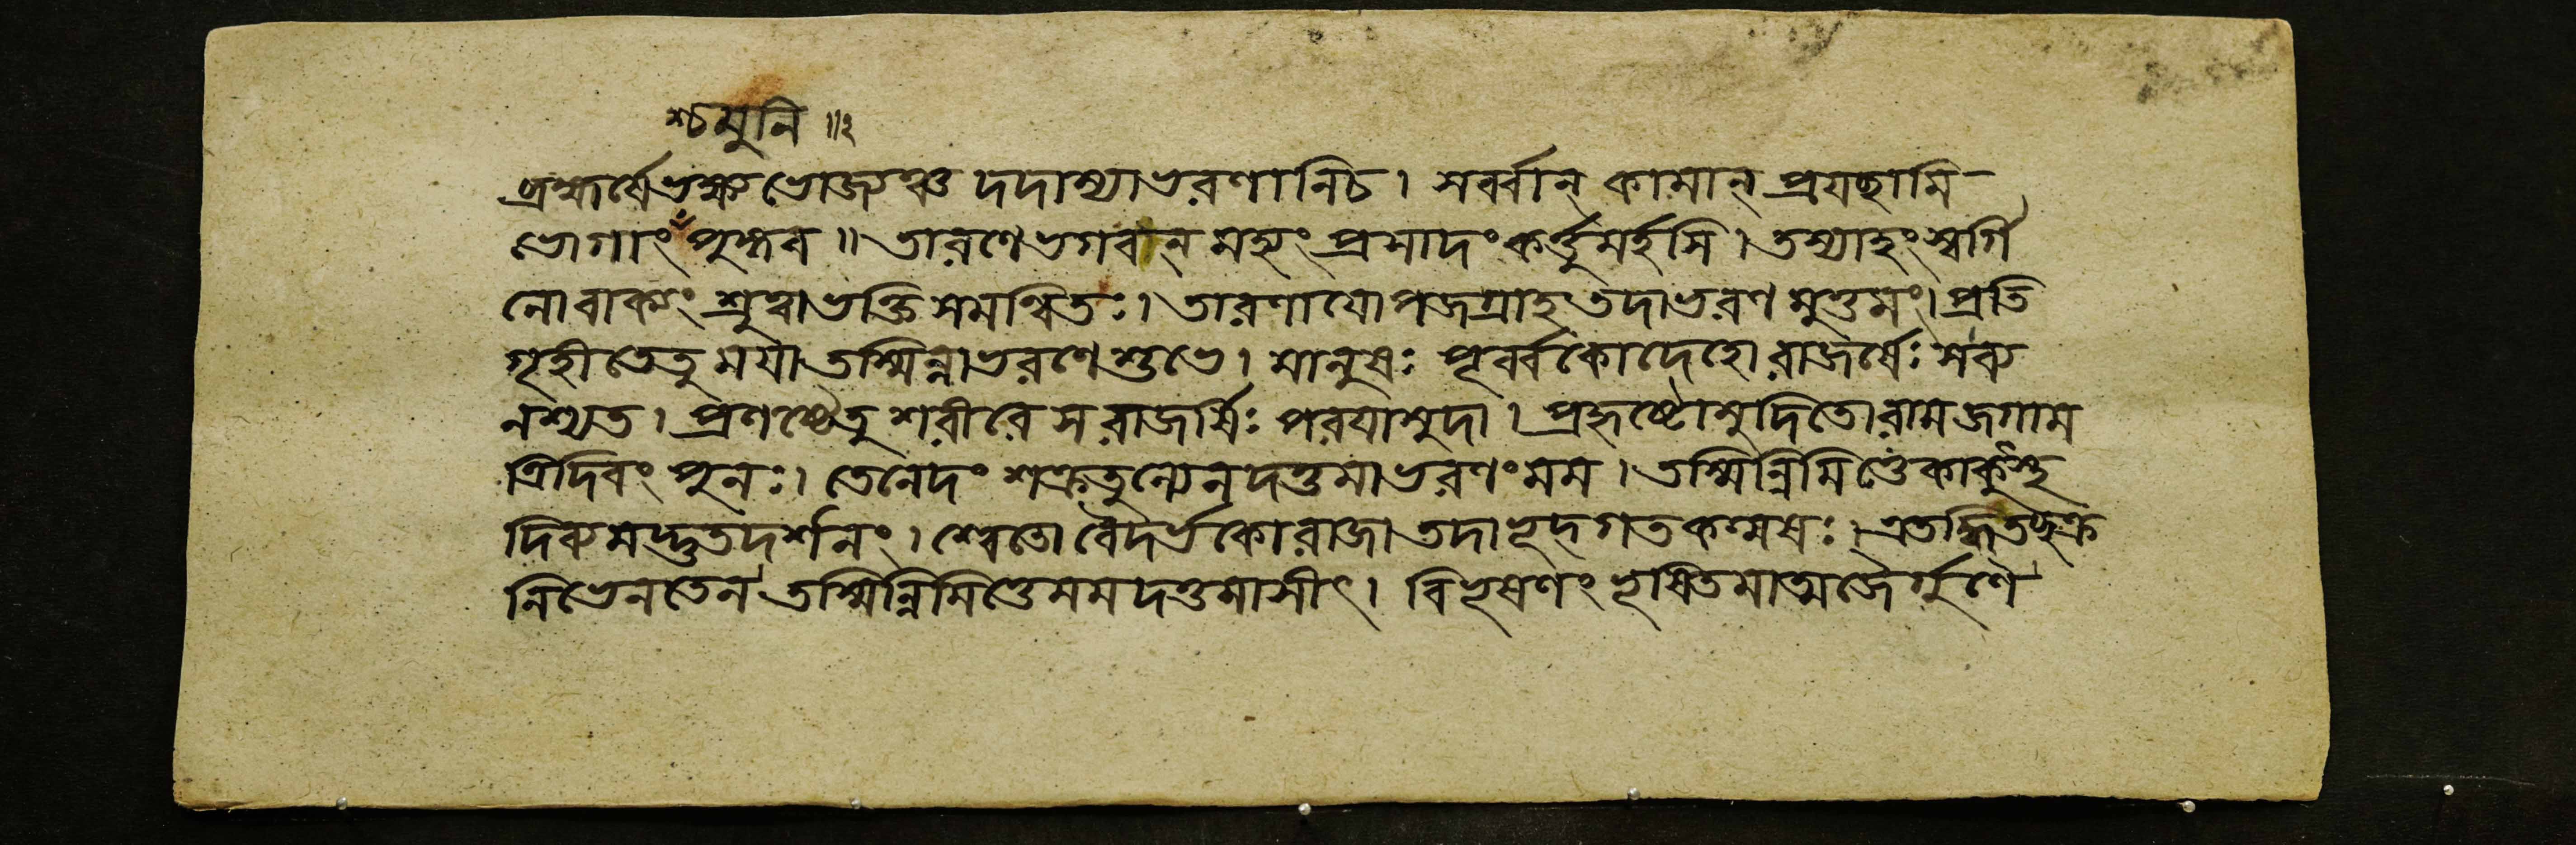 শ্চ মুনি ॥ ২
ব্রহ্মর্ষে ভক্ষ্য ভোজ্যঞ্চ দদাম্যাভরণানি চ । সর্ব্বান্ কামান্ প্রযচ্ছামি
ভোগাং পুঙ্গব ॥ তারণে ভগবান্ মহ্যং প্রসাদং কর্ত্তুমর্হসি । তস্যাহং স্বর্গি
নো বাক্যং শ্রুত্বা ভক্তি সমন্বিতঃ । তারণাযোপজগ্রাহ তদাভরণ মুত্তমং । প্রতি
গৃহীতে তু ময়া তস্মিন্নাভরণে শুভে । মানুষঃ পূর্ব্বকো দেহো রাজর্ষেঃ স ব্য
নশ্যত । প্রণষ্টে তু শরীরে স রাজর্ষিঃ পরযা মুদা । প্রহৃষ্টো মুদিতো রাম জগাম
ত্রিদিবং পুনঃ । তেনেদং শক্রতুল্যেন দত্তমাভরণং মম । তস্মিন্নিমিত্তে কাকুৎস্থ
দিব্যমদ্ভুতদর্শনং । শ্বেতো বৈদর্ভকো রাজা তদাভূদ্গতকল্মষঃ ।
নিভেন তেন তস্মিন্নিমিত্তে মম দত্তমাসীৎ । বিভূষণং ভূষিতমাত্মজৈর্গুণৈ